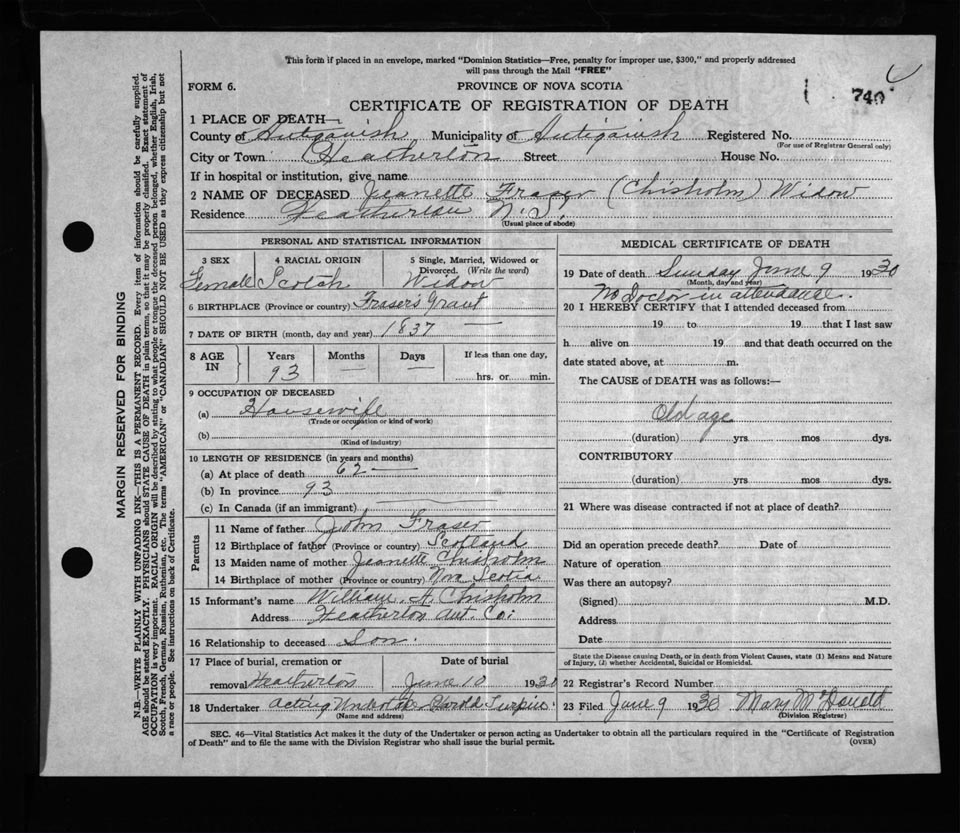 This form if placed in an envelope, marked "Dominion Statistics—Free, penalty for improper use, $300," and properly addressed
will pass through the Mail "FREE"
FORM 6.
PROVINCE OF NOVA SCOTIA
740
CERTIFICATE OF REGISTRATION OF DEATH
1 PLACE OF DEATH—
County of Antigonish Municipality of Antigonish Registered No.
(For use of Registrar General only)
City or Town Heatherton Street House No.
If in hospital or institution, give name
2 NAME OF DECEASED Jeanette Fraser (Chisholm) Widow
Residence Heatherton N.S.
(Usual place of abode)
PERSONAL AND STATISTICAL INFORMATION
3 SEX 4 RACIAL ORIGIN 5 Single, Married, Widowed or
Divorced. (Write the word)
Female Scotch Widow
6 BIRTHPLACE (Province or country) Frasers Grant
7 DATE OF BIRTH (month, day and year) 1837 —
8 AGE IN Years Months Days If less than one day,
93 — — hrs. or min.
9 OCCUPATION OF DECEASED
(a) Housewife
(Trade or occupation or kind of work)
(b)
(Kind of industry)
10 LENGTH OF RESIDENCE (in years and months)
(a) At place of death 62 —
(b) In province 93
(c) In Canada (if an immigrant)
Parents
11 Name of father John Fraser
12 Birthplace of father (Province or country) Scotland
13 Maiden name of mother Jeanette Chisholm
14 Birthplace of mother (Province or country) Nova Scotia
15 Informant's name William A. Chisholm
Address Heatherton Ant. Co.
16 Relationship to deceased Son.
17 Place of burial, cremation or Date of burial
removal Heatherton June 10 1930
18 Undertaker Acting Undertaker Harold
(Name and address)
MEDICAL CERTIFICATE OF DEATH
19 Date of death Sunday June 9 1930
(Month, day and year)
No Doctor in attendance.
20 I HEREBY CERTIFY that I attended deceased from
19 to 19 that I last saw
h alive on 19 and that death occurred on the
date stated above, at m.
The CAUSE of DEATH was as follows:—
Old age
(duration) yrs mos dys.
CONTRIBUTORY
(duration) yrs mos dys.
21 Where was disease contracted if not at place of death?
Did an operation precede death? Date of
Nature of operation
Was there an autopsy?
(Signed) M.D.
Address
Date
State the Disease causing Death, or in death from Violent Causes, state (1) Means and Nature
of Injury, (2) whether Accidental, Suicidal or Homicidal.
22 Registrar's Record Number
23 Filed June 9 1930 Mary McDonald
(Division Registrar)
SEC. 46—Vital Statistics Act makes it the duty of the Undertaker or person acting as Undertaker to obtain all the particulars required in the "Certificate of Registration
of Death" and to file the same with the Division Registrar who shall issue the burial permit.
(OVER)
MARGIN RESERVED FOR BINDING
N.B.—WRITE PLAINLY WITH UNFADING INK—THIS IS A PERMANENT RECORD. Every item of information should be carefully supplied.
AGE should be stated EXACTLY. PHYSICIANS should STATE CAUSE OF DEATH in plain terms, so that it may be properly classified. Exact statement of
OCCUPATION is very important. RACIAL ORIGIN will be described by stating to what people or tongue the deceased person belonged, whether English, Irish,
Scotch, French, German, Russian, Ruthenian, etc. The terms "AMERICAN" or "CANADIAN" SHOULD NOT BE USED as they express citizenship but not
a race or people. See instructions on back of Certificate.